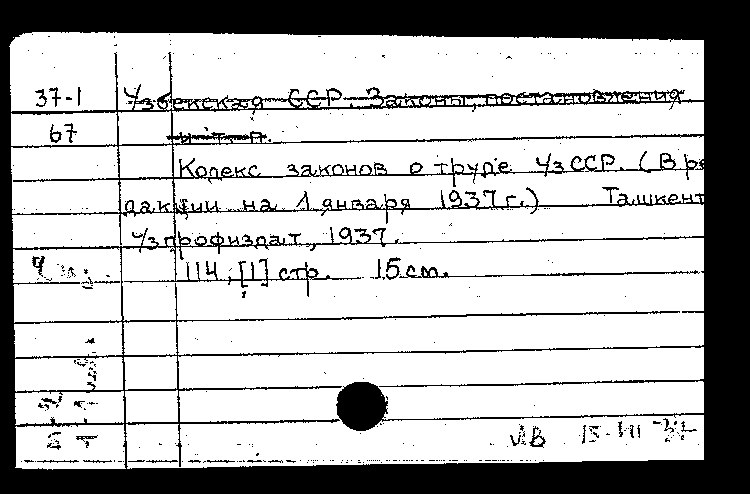 37-1 Узбекская ССР. Законы, постановления
67 и т. п.
Кодекс законов о труде УзССР. (В ре
дакции на 1 января 1937 г.) Ташкент
Узпрофиздат, 1937.
114, [1] стр. 15 см.